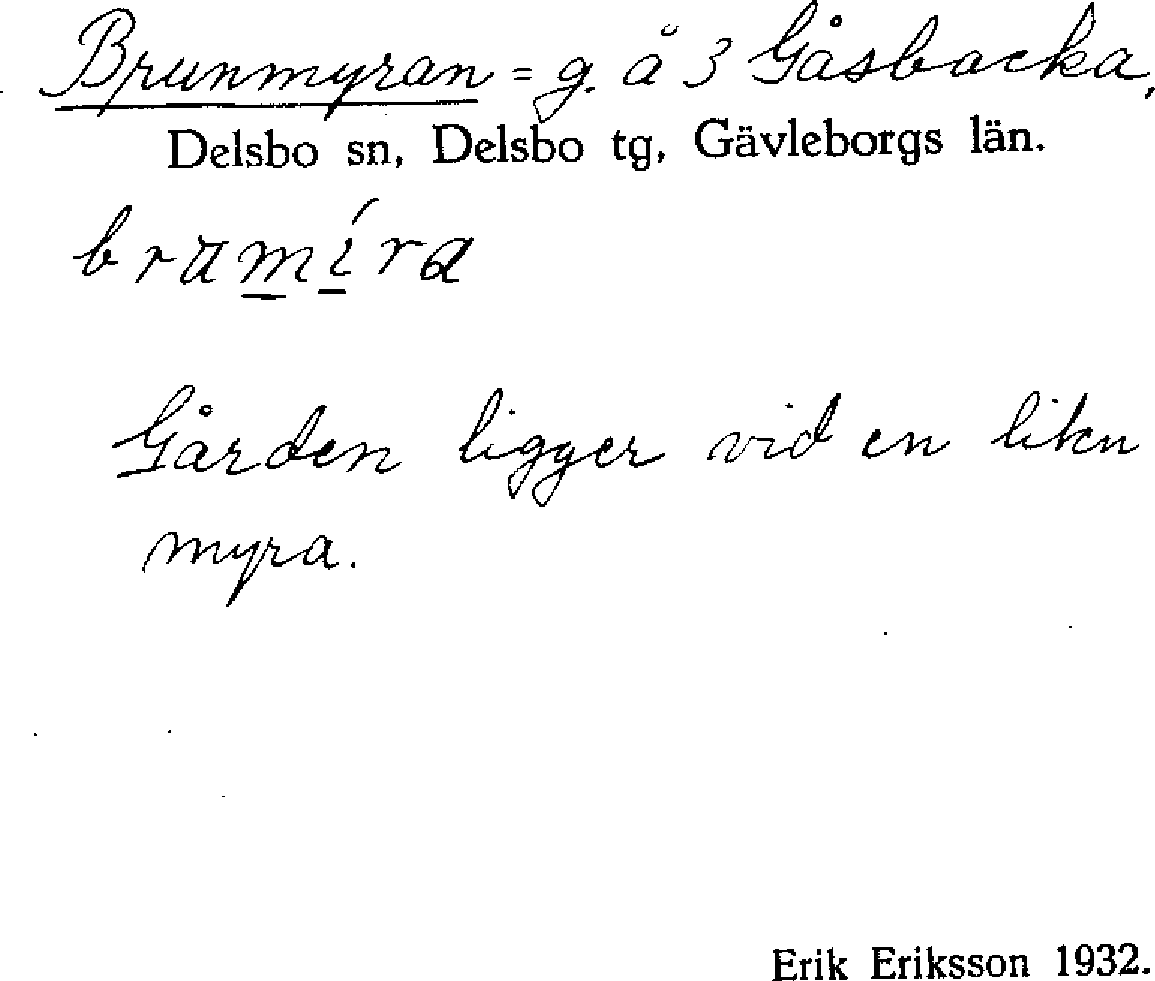 Brunmyran = g. å 3 Gåsbacka,
Delsbo sn, Delsbo tg, Gävleborgs län.
brumíra
Gården ligger vid en liten
myra.
Erik Eriksson 1932.